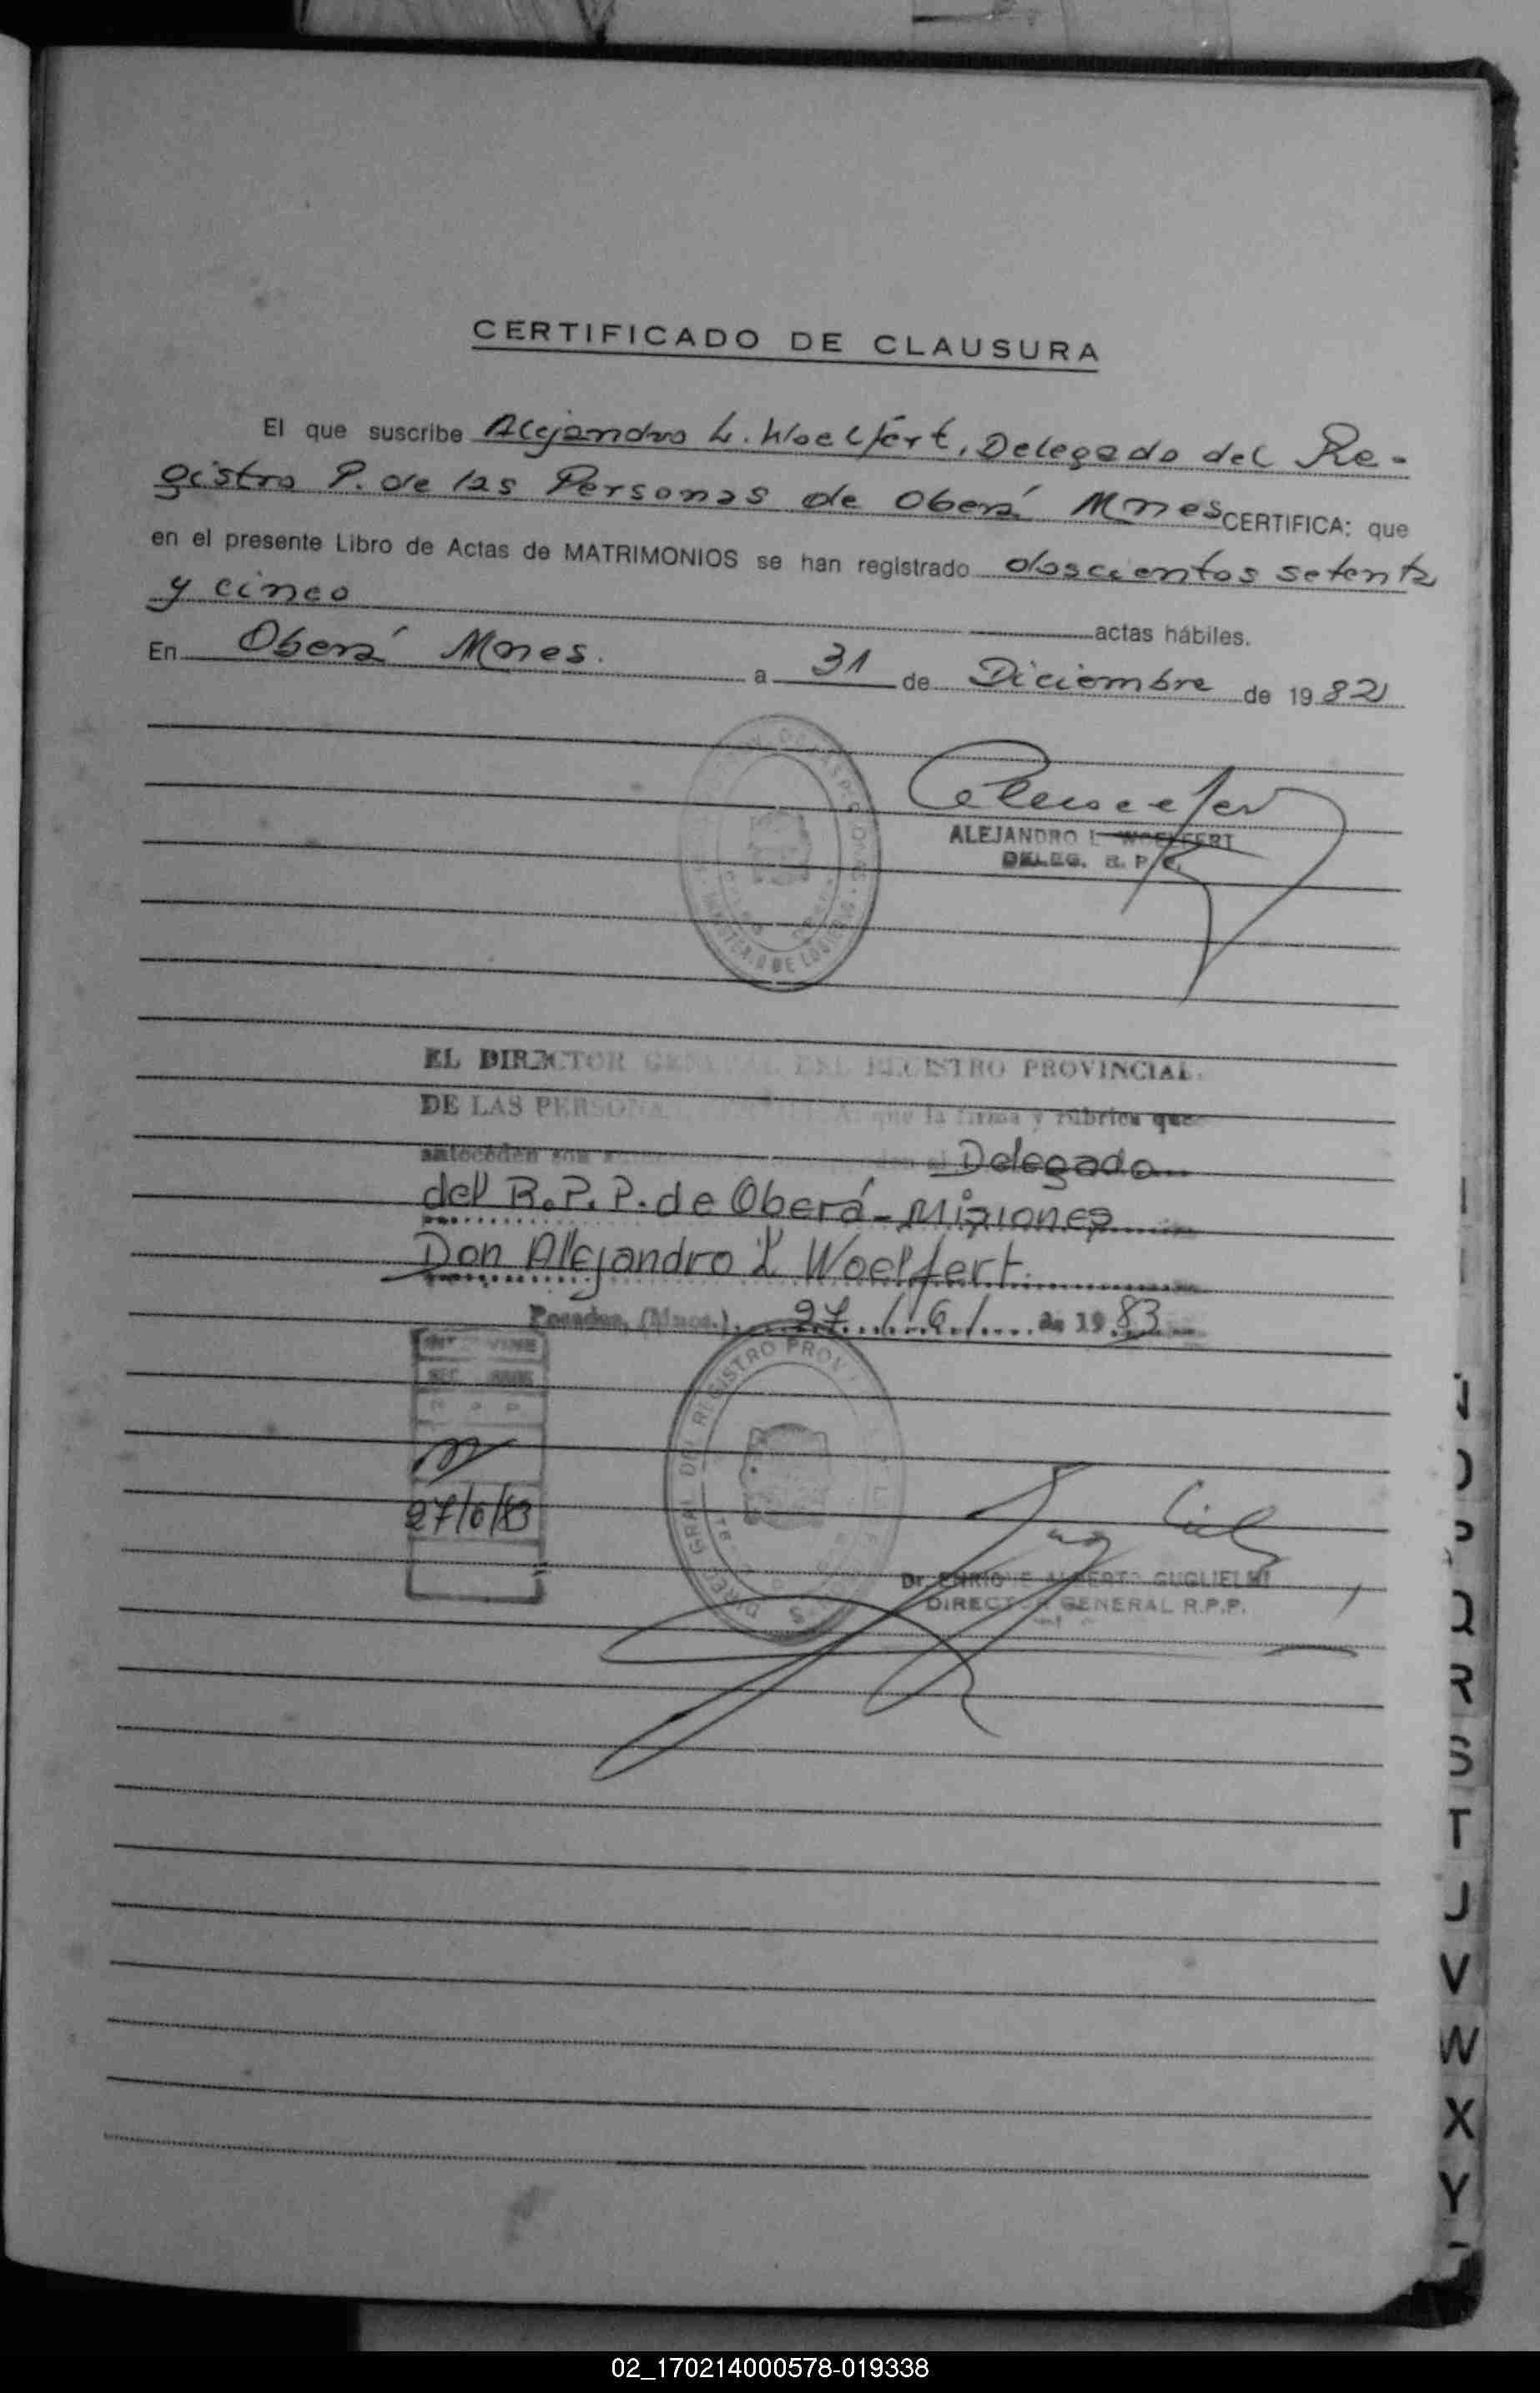 CERTIFICADO DE CLAUSURA
El que suscribe Alejandro L. Woelfert, Delegado del Re-
gistro P. de las Personas de Oberá Mnes CERTIFICA: que
en el presente Libro de Actas de MATRIMONIOS se han registrado doscientos setenta
y cinco actas hábiles.
En Oberá Mnes. a 31 de Diciembre de 1982
ALEJANDRO L. WOELFERT
DELEG. R. P. P.
EL DIRECTOR GENERAL DEL REGISTRO PROVINCIAL
DE LAS PERSONAS que la firma y rúbrica que
anteceden son el Delegado
del R.P.P. de Oberá - Misiones
Don Alejandro L Woelfert
Posadas, (Mnes.), 27 / 6 / de 1983
DIREC. GRAL. DEL REGISTRO PROV
R P P
27/6/83
Dr. ENRIQUE ALBERTO GUGLIELMI
DIRECTOR GENERAL R.P.P.
Q
R
S
T
J
V
W
X
Y
02_170214000578-019338